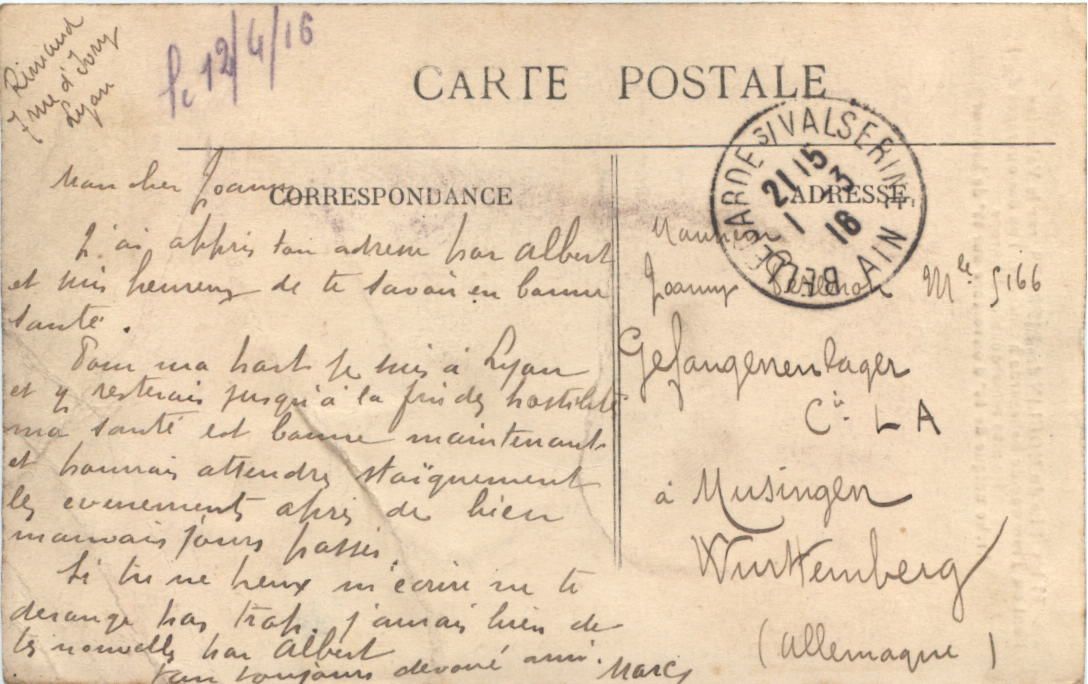 Rivaud
7 rue d'Ivry
Lyon
le 12/4/16
CARTE POSTALE
CORRESPONDANCE
ADRESSE
BELLEGARDE S/VALSERINE
AIN
21 15
1 3
16
Mon cher Joanny
J'ai appris ton adresse par Albert
et suis heureux de te savoir en bonne
santé.
Pour ma part je suis à Lyon
et y resterais jusqu'à la fin des hostilité
ma santé est bonne maintenant
et pourrais attendre stoïquement
les evenements après de bien
mauvais jours passés.
Si tu ne peux m'écrire ne te
derange pas trop, j'aurais bien de
tes nouvelles par Albert
Ton toujours devoué ami.
Marcy
Monsieur
Joanny Mle 5166
Gefangenenlager
Cie LA
à Musingen
Wurttemberg
(Allemagne)